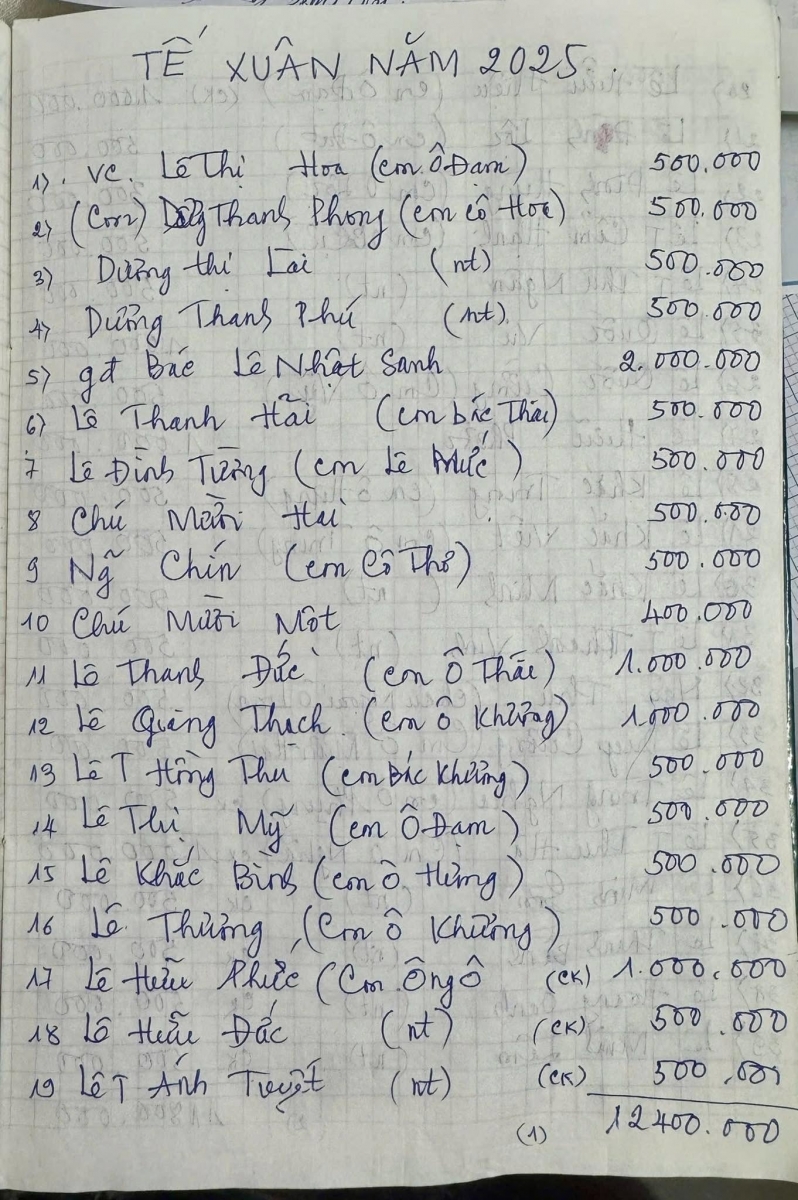 TẾ XUÂN NĂM 2025
1) vc. Lê Thị Hoa (con Ô Đạm) 500.000
2) (Con) Thanh Phong (con cô Hoa) 500.000
3) Dương thị Lài (nt) 500.000
4) Dương Thanh Phú (nt) 500.000
5) gđ Bác Lê Nhật Sanh 2.000.000
6) Lê Thanh Hải (con bác Thái) 500.000
7 Lê Đình Tường (con Lê Phức) 500.000
8 Chú Mười Hai 500.000
9 Ngũ Chín (con Cô Thơ) 500.000
10 Chú Mười Một 400.000
11 Lê Thanh Đức (con Ô Thái) 1.000.000
12 Lê Quảng Thạch (con Ô Khương) 1.000.000
13 Lê T Hồng Thu (con Bác Khương) 500.000
14 Lê Thị Mỹ (con Ô Đạm) 500.000
15 Lê Khắc Bình (con Ô Hưng) 500.000
16 Lê Thương (con Ô Khương) 500.000
17 Lê Hữu Phước (Con Ông Ô (CK) 1.000.000
18 Lê Hữu Đắc (nt) (CK) 500.000
19 Lê T Ánh Tuyết (nt) (CK) 500.000
(1) 12400.000